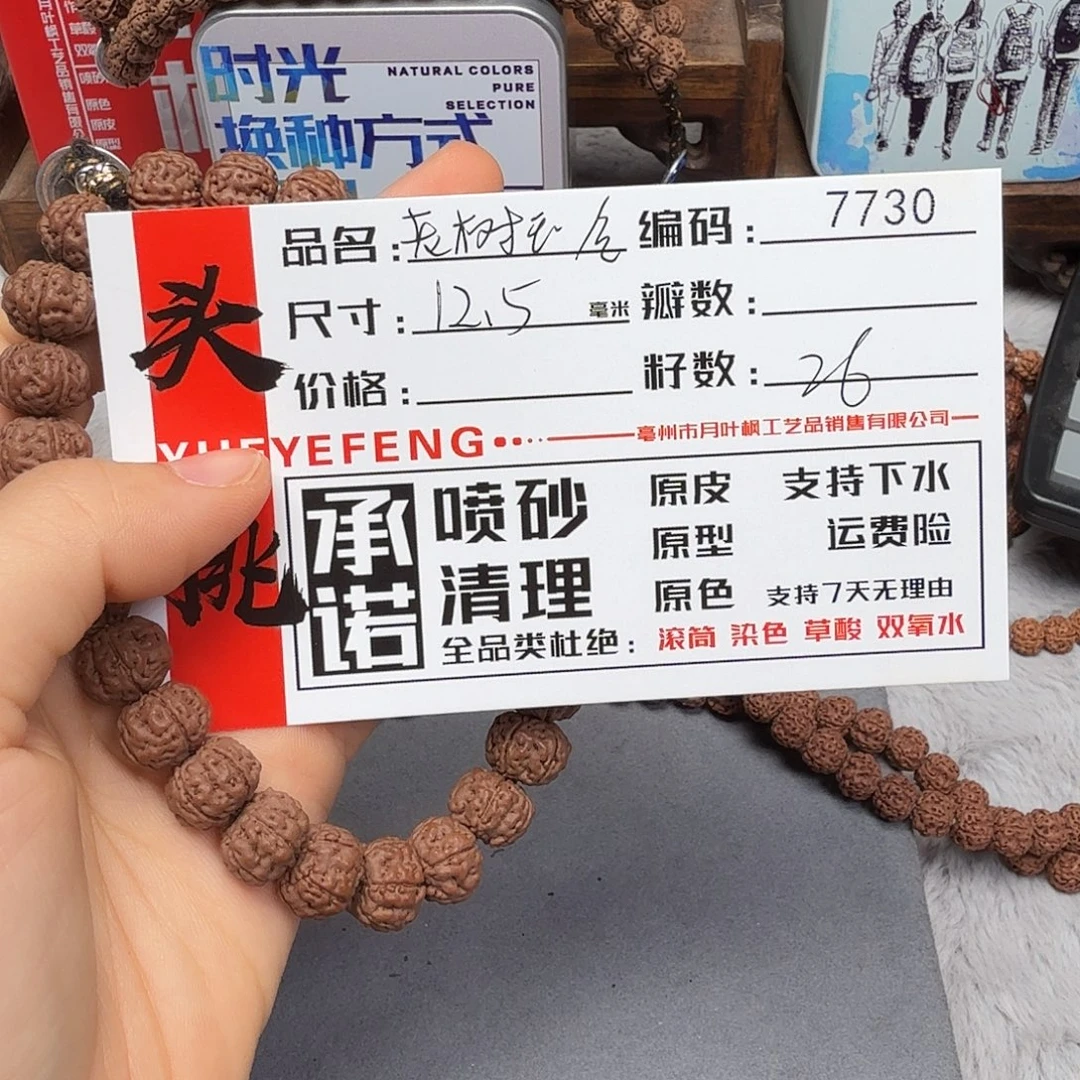 月叶枫工艺品销售有限公
草酸
双氧
喷砂
原色
原皮
原型
时光
换种方式
NATURAL COLORS
PURE
SELECTION
头
桃
品名：老树 编码：7730
尺寸：12.5 毫米 瓣数：
价格： 籽数：26
YUEYEFENG
亳州市月叶枫工艺品销售有限公司
承诺
喷砂
清理
原皮 支持下水
原型 运费险
原色 支持7天无理由
全品类杜绝：滚筒 染色 草酸 双氧水